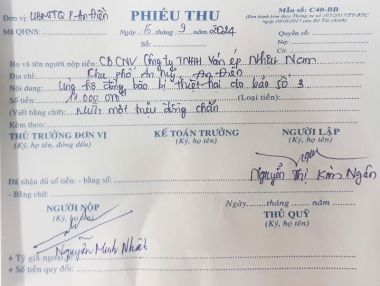 Đơn vị: UBMTTQ P. An Điền
PHIẾU THU
Mẫu số: C40-BB
Mã QHNS:
Ngày 15 tháng 9 / 2024
Quyển số:
Số:
Nợ:
Có:
Họ và tên người nộp tiền: CB.CNV Công ty TNHH Ván ép Nhiều Nam
Địa chỉ: Khu phố An Mỹ, An Điền
Nội dung: Ủng hộ đồng bào bị thiệt hại do bão số 3
Số tiền: 11.000.000 (Loại tiền):
(Viết bằng chữ): Mười một triệu đồng chẵn
Kèm theo:
THỦ TRƯỞNG ĐƠN VỊ
KẾ TOÁN TRƯỞNG
NGƯỜI LẬP
(Ký, họ tên, đóng dấu)
(Ký, họ tên)
(Ký, họ tên)
Nguyễn Thị Kim Ngân
Đã nhận đủ số tiền: - bằng số:
- Bằng chữ:
NGƯỜI NỘP
Ngày tháng năm
(Ký, họ tên)
THỦ QUỸ
(Ký, họ tên)
Nguyễn Minh Nhật
+ Tỷ giá ngoại tệ
+ Số tiền quy đổi: